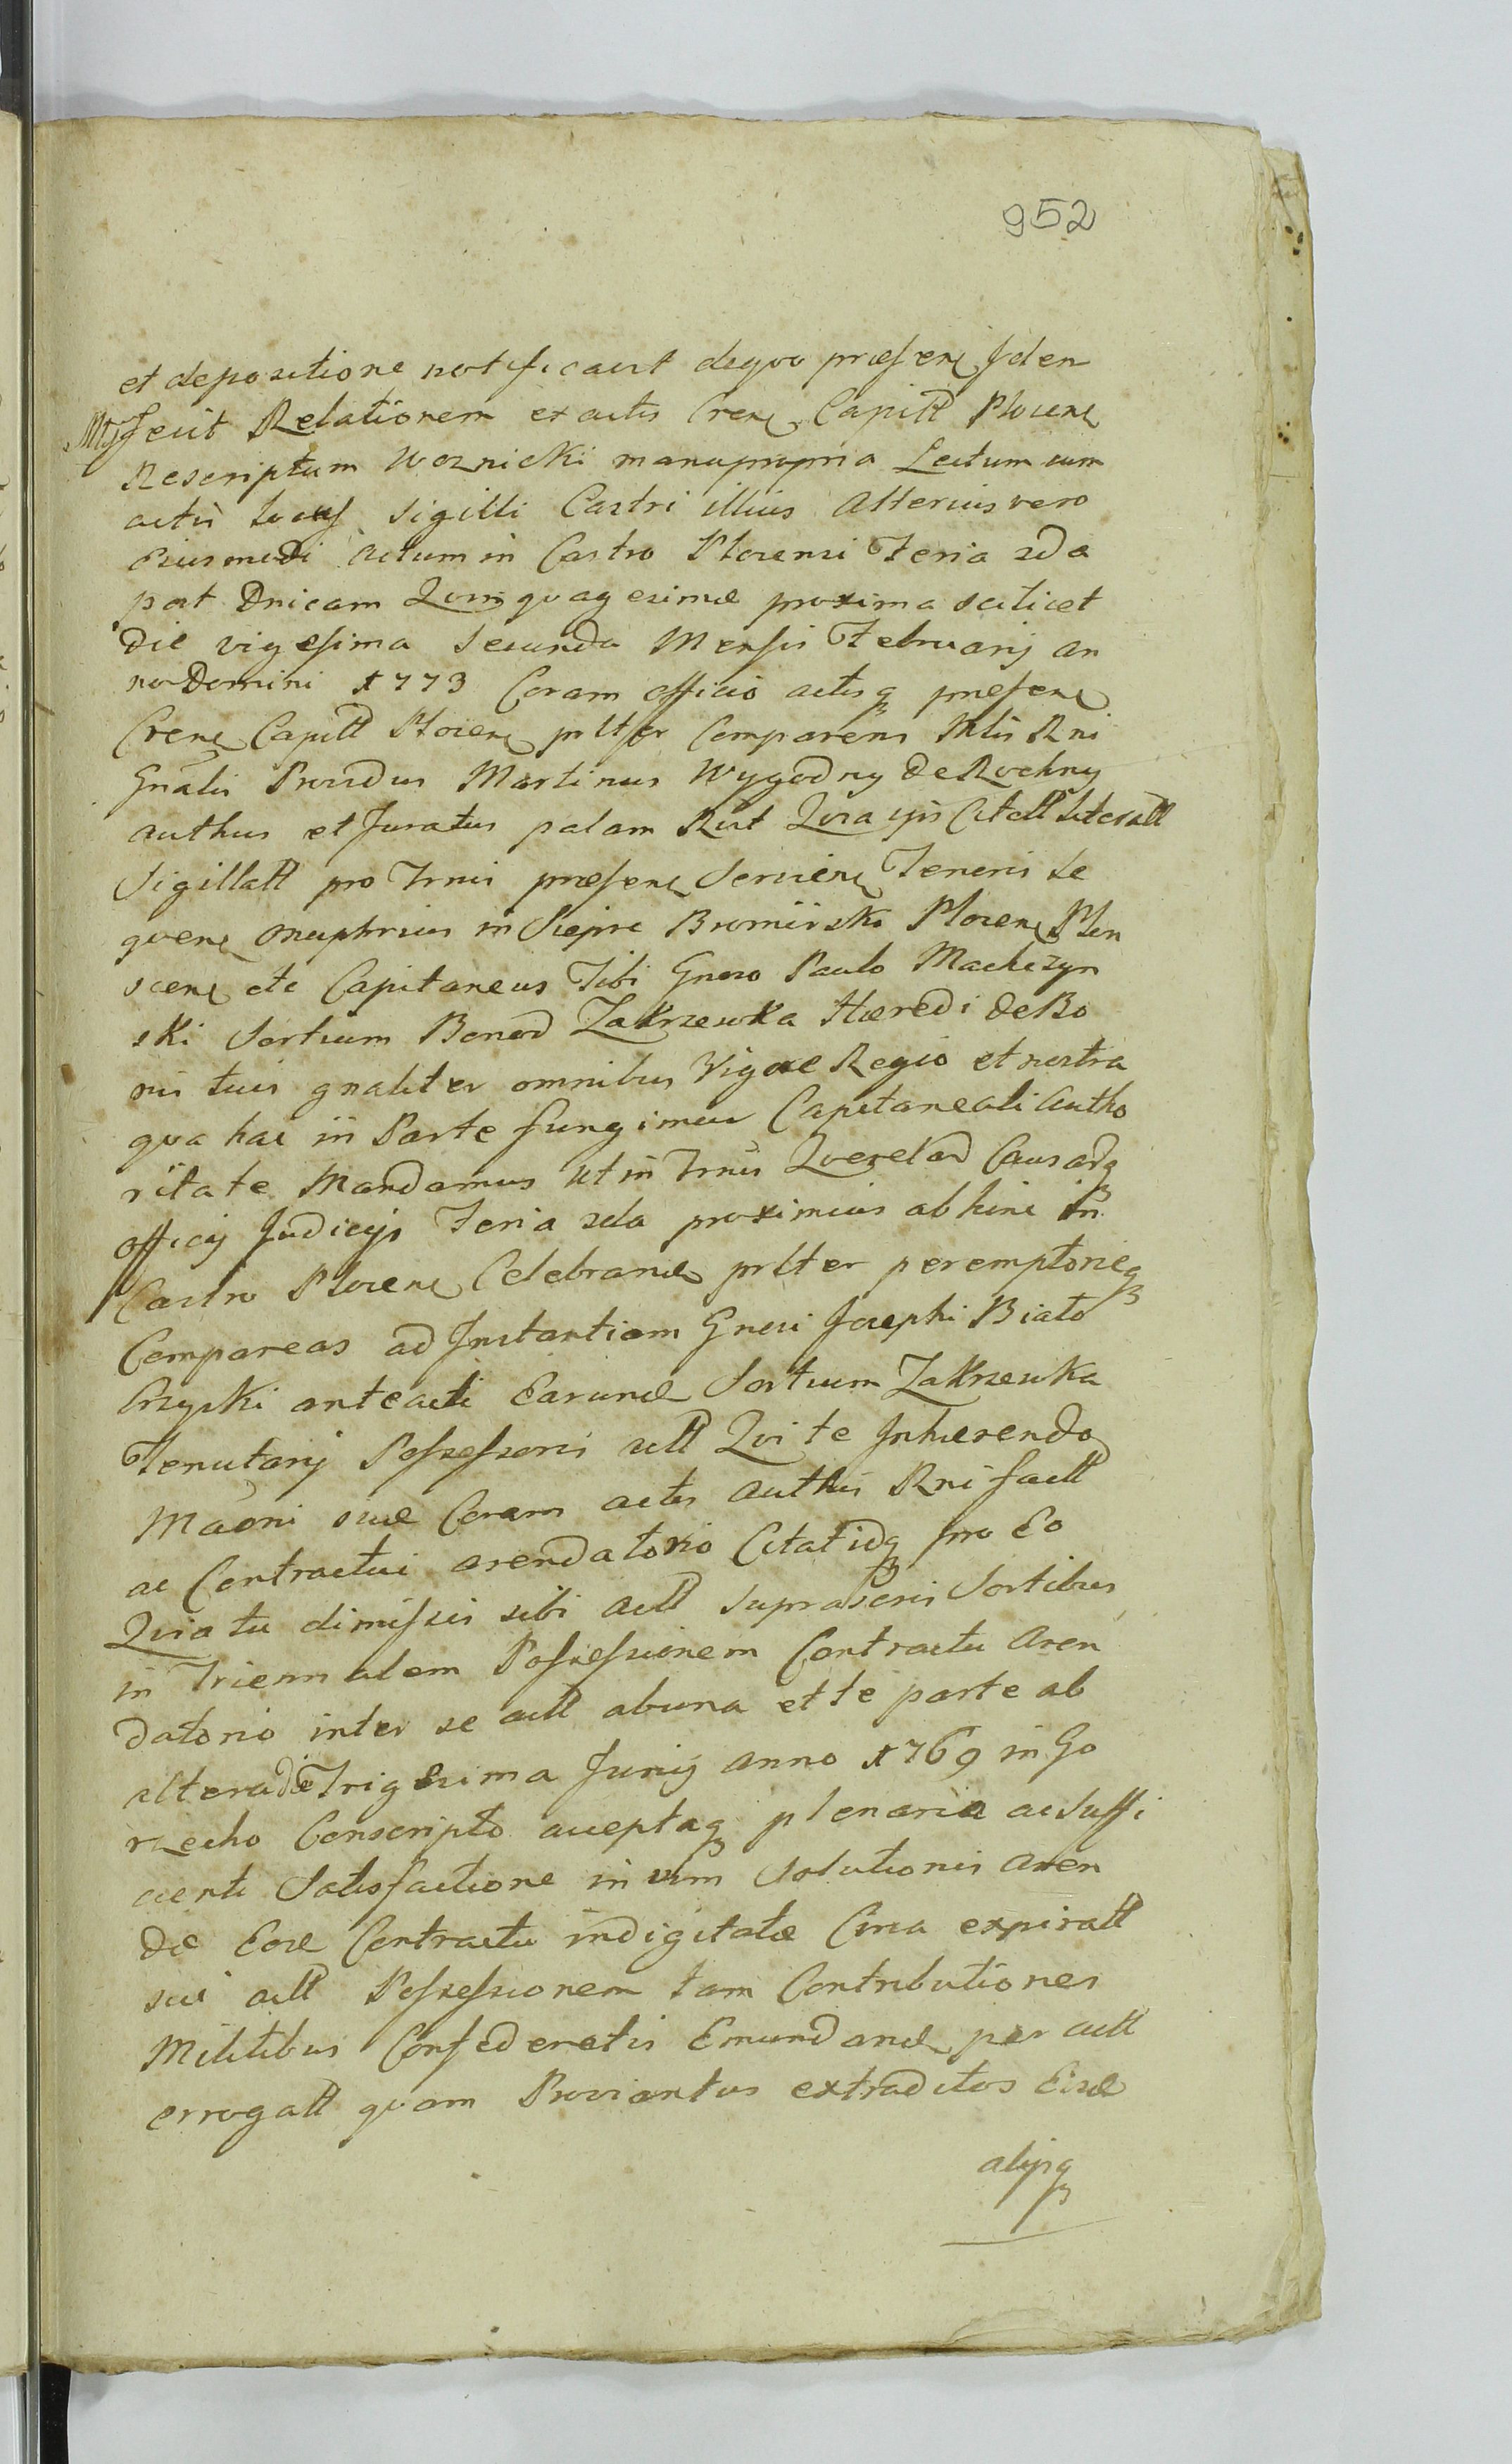 952
et depositione notificavit deqvo præsen Iden
Mtj fecit Relationem ex actis Cren Capitll Plocen
Rescriptum Woznicki manupropria Lectum cum
actis Locus Sigilli Castri illius Alterius vero
eiusmodi Actum in Castro Plocensi Feria 2da
post Dnicam Qvinqvagesimæ proxima scilicet
die vigesima Secunda Mensis Februarij An
no Domini 1773 Coram officio actisq præsen
Cren Capitll Plocen prlter Comparens Mtis Rni
Gnalis Providus Martinus Wygodny de Rochny
authus et Juratus palam Rcit Qvia ipse Citatll literatll
Sigillatll pro Trnis præsen Servien Teneris Se
qven Onuphrius in Siepre Bromirski Plocen Plon
scen etc Capitaneus Tibi Gnoso Paulo Machczyn
ski Sortium Bonor Zakrzewka Hæredi de Bo
nis tuis gnaliter omnibus Vigore Regio et nostra
qva hac in Parte fungimur Capitaneali Autho
ritate Mandamus ut in Trnis Qverelar Causarq
officij Judicijs Feria 2da proximius abhinc in
Castro Plocen Celebrand prlter peremptorieq
Compareas ad Instantiam Gnosi Josephi Biało
brzyski anteacti Earund Sortium Zakrzewka
Tenutarij Possessoris actll Qvi te Inhærendo
Maoni suæ Coram actis authis Rni factll
ac Contractui arendatorio Citat idq pro Eo
Qvia tu dimissis sibi actll Suprascris Sortibus
in Triennalem Possessionem Contractu Aren
datorio inter se actll abuna et te parte ab
altera die Trigesima Junij anno 1769 in Go
rzecho Conscripto acceptaq plenaria ac Suffi
cienti Satisfactione in vim Solutionis Aren
dæ Eod Contractu indigitatæ Circa expiratll
sui actll Possessionem tam Contributiones
Militibus Confederatis Emundand per actll
errogatll qvam Proviantus extraditos Eisd
alijsq